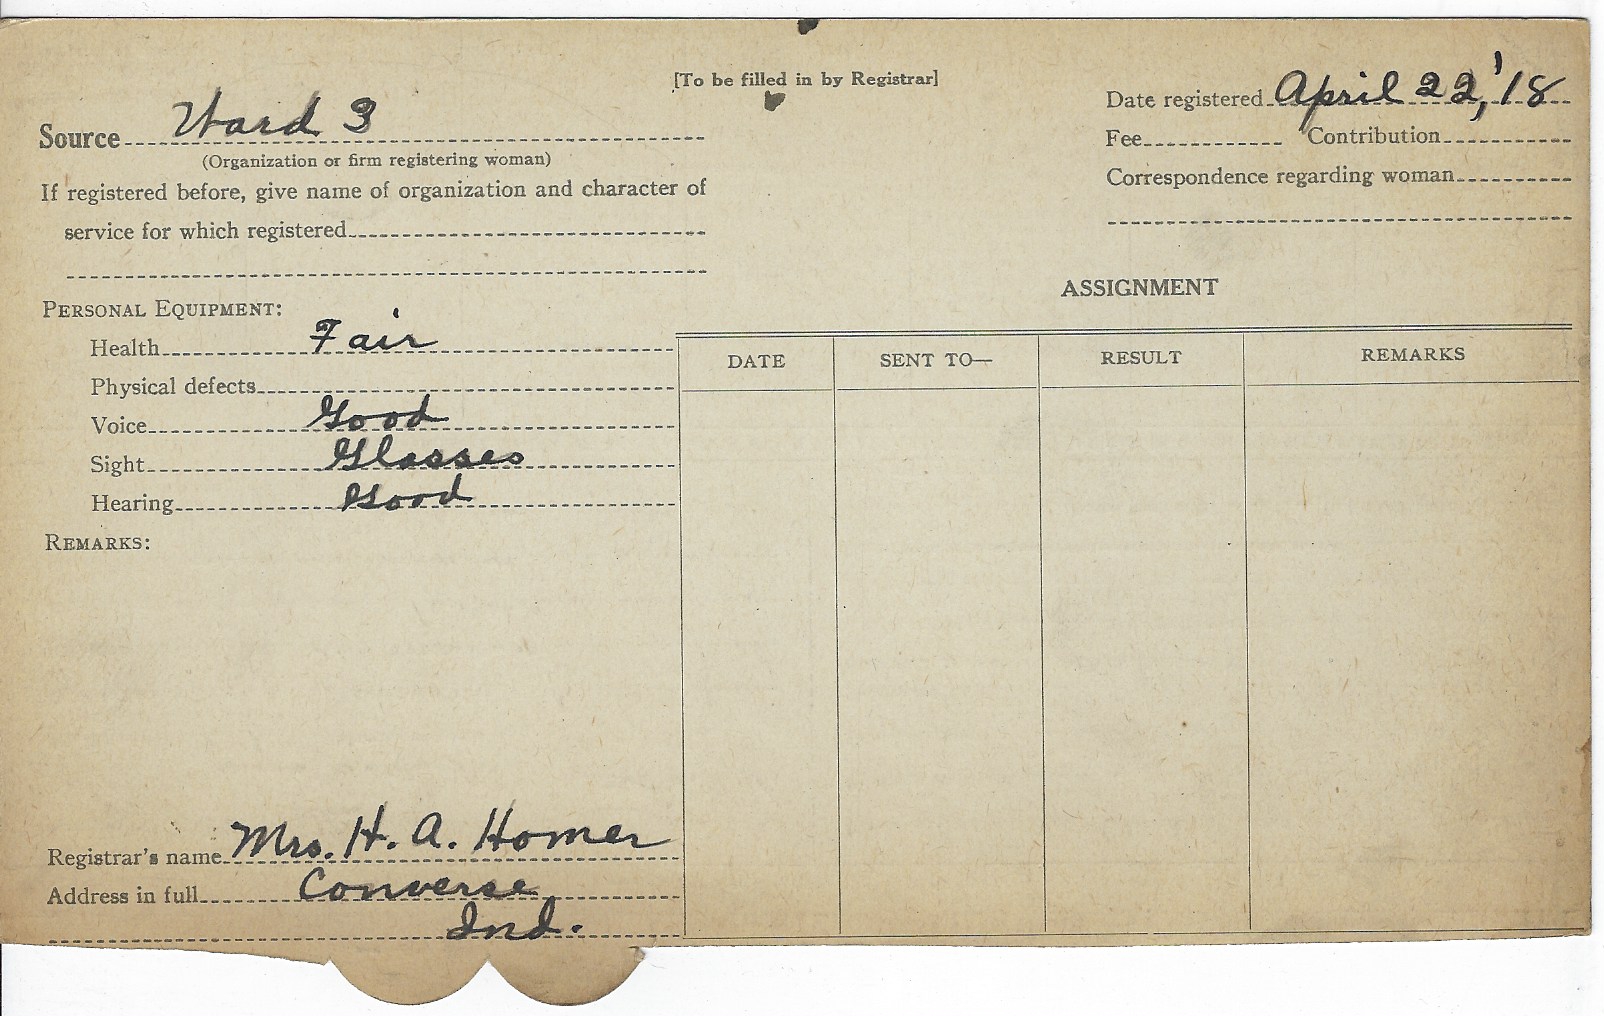 [To be filled in by Registrar]
Source Ward 3
(Organization or firm registering woman)
If registered before, give name of organization and character of
service for which registered
Date registered April 22, '18
Fee Contribution
Correspondence regarding woman
PERSONAL EQUIPMENT:
Health Fair
Physical defects
Voice Good
Sight Glasses
Hearing Good
REMARKS:
Registrar's name Mrs. H. A. Homer
Address in full Converse
Ind.
ASSIGNMENT
DATE SENT TO— RESULT REMARKS